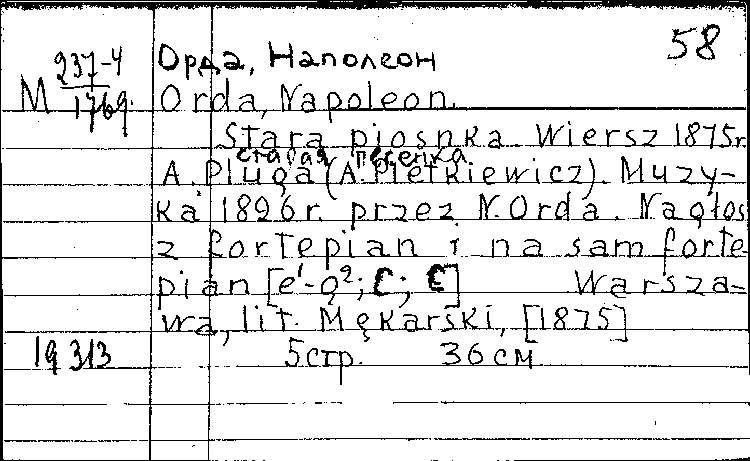 58
М 237-4
1769.
Орда, Наполеон
Orda, Napoleon.
Stara piosnka. Wiersz 1875r.
старая песенка
A. Pługa (A. Pietkiewicz). Muzy-
ka 1826 r. przez N. Orda. Na głos
z fortepian i na sam forte
pian [e¹-g²; C; C] Warsza-
wa, lit. Mękarski, [1875]
19 313
5 стр. 36 см